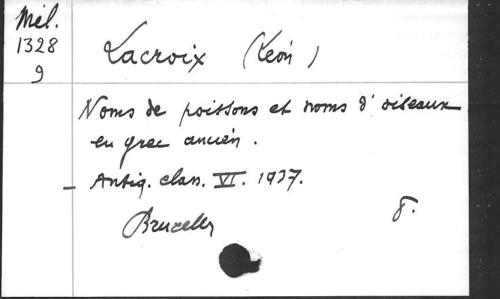 Mél.
1328
9
Lacroix (Léon)
Noms de poissons et noms d'oiseaux
en grec ancien.
– Antiq. class. VI. 1937.
Bruxelles 8.